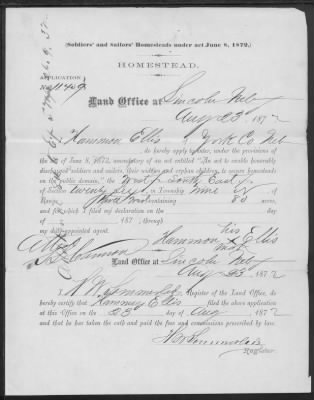 (Soldiers' and Sailors' Homesteads under act June 8, 1872.)
HOMESTEAD.
APPLICATION
No. 11409
Land Office at Lincoln Neb
Aug 23d 1872
I, Hammon Ellis of York Co Neb
, do hereby apply to enter, under the provisions
of the act of June 8, 1872, amendatory of an act entitled "An act to enable honorably
discharged soldiers and sailors, their widows and orphan children, to acquire homesteads
on the public domain," the West ½ South East ¼
of Section twenty six in Township nine N of
Range containing 80 acres,
and for which I filed my declaration on the day
of , 187 , through
my duly-appointed agent.
his
Hammon x Ellis
mark
Attest
Land Office at Lincoln Neb
Aug 23 1872
I, , Register of the Land Office, do
hereby certify that Hammon Ellis filed the above application
at this Office on the 23 day of Aug , 1872
and that he has taken the oath and paid the fee and commissions prescribed by law.
Register.